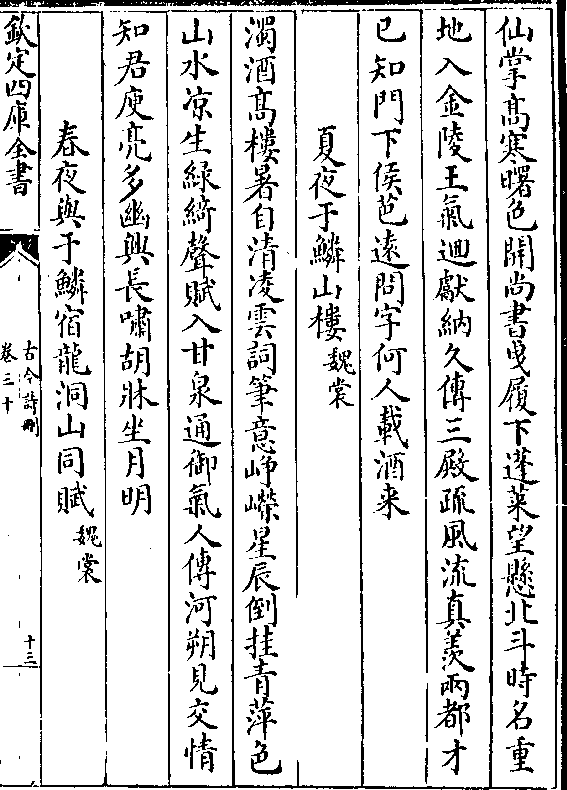 仙掌髙寒曙色開尚書曵履下蓬萊望懸北斗時名重
地入金陵王氣迴獻納久傳三殿疏風流真羨兩都才
已知門下侯芭遠問字何人載酒来
夏夜于鱗山樓 魏裳
濁酒髙樓暑自清凌雲詞筆意峥嶸星辰倒挂青萍色
山水凉生緑綺聲賦入甘泉通御氣人傳河朔見交情
知君庾亮多幽興長嘯胡牀坐月明
春夜與于鱗宿龍洞山同賦 魏裳
欽定四庫全書
古今詩刪
卷三十
十三